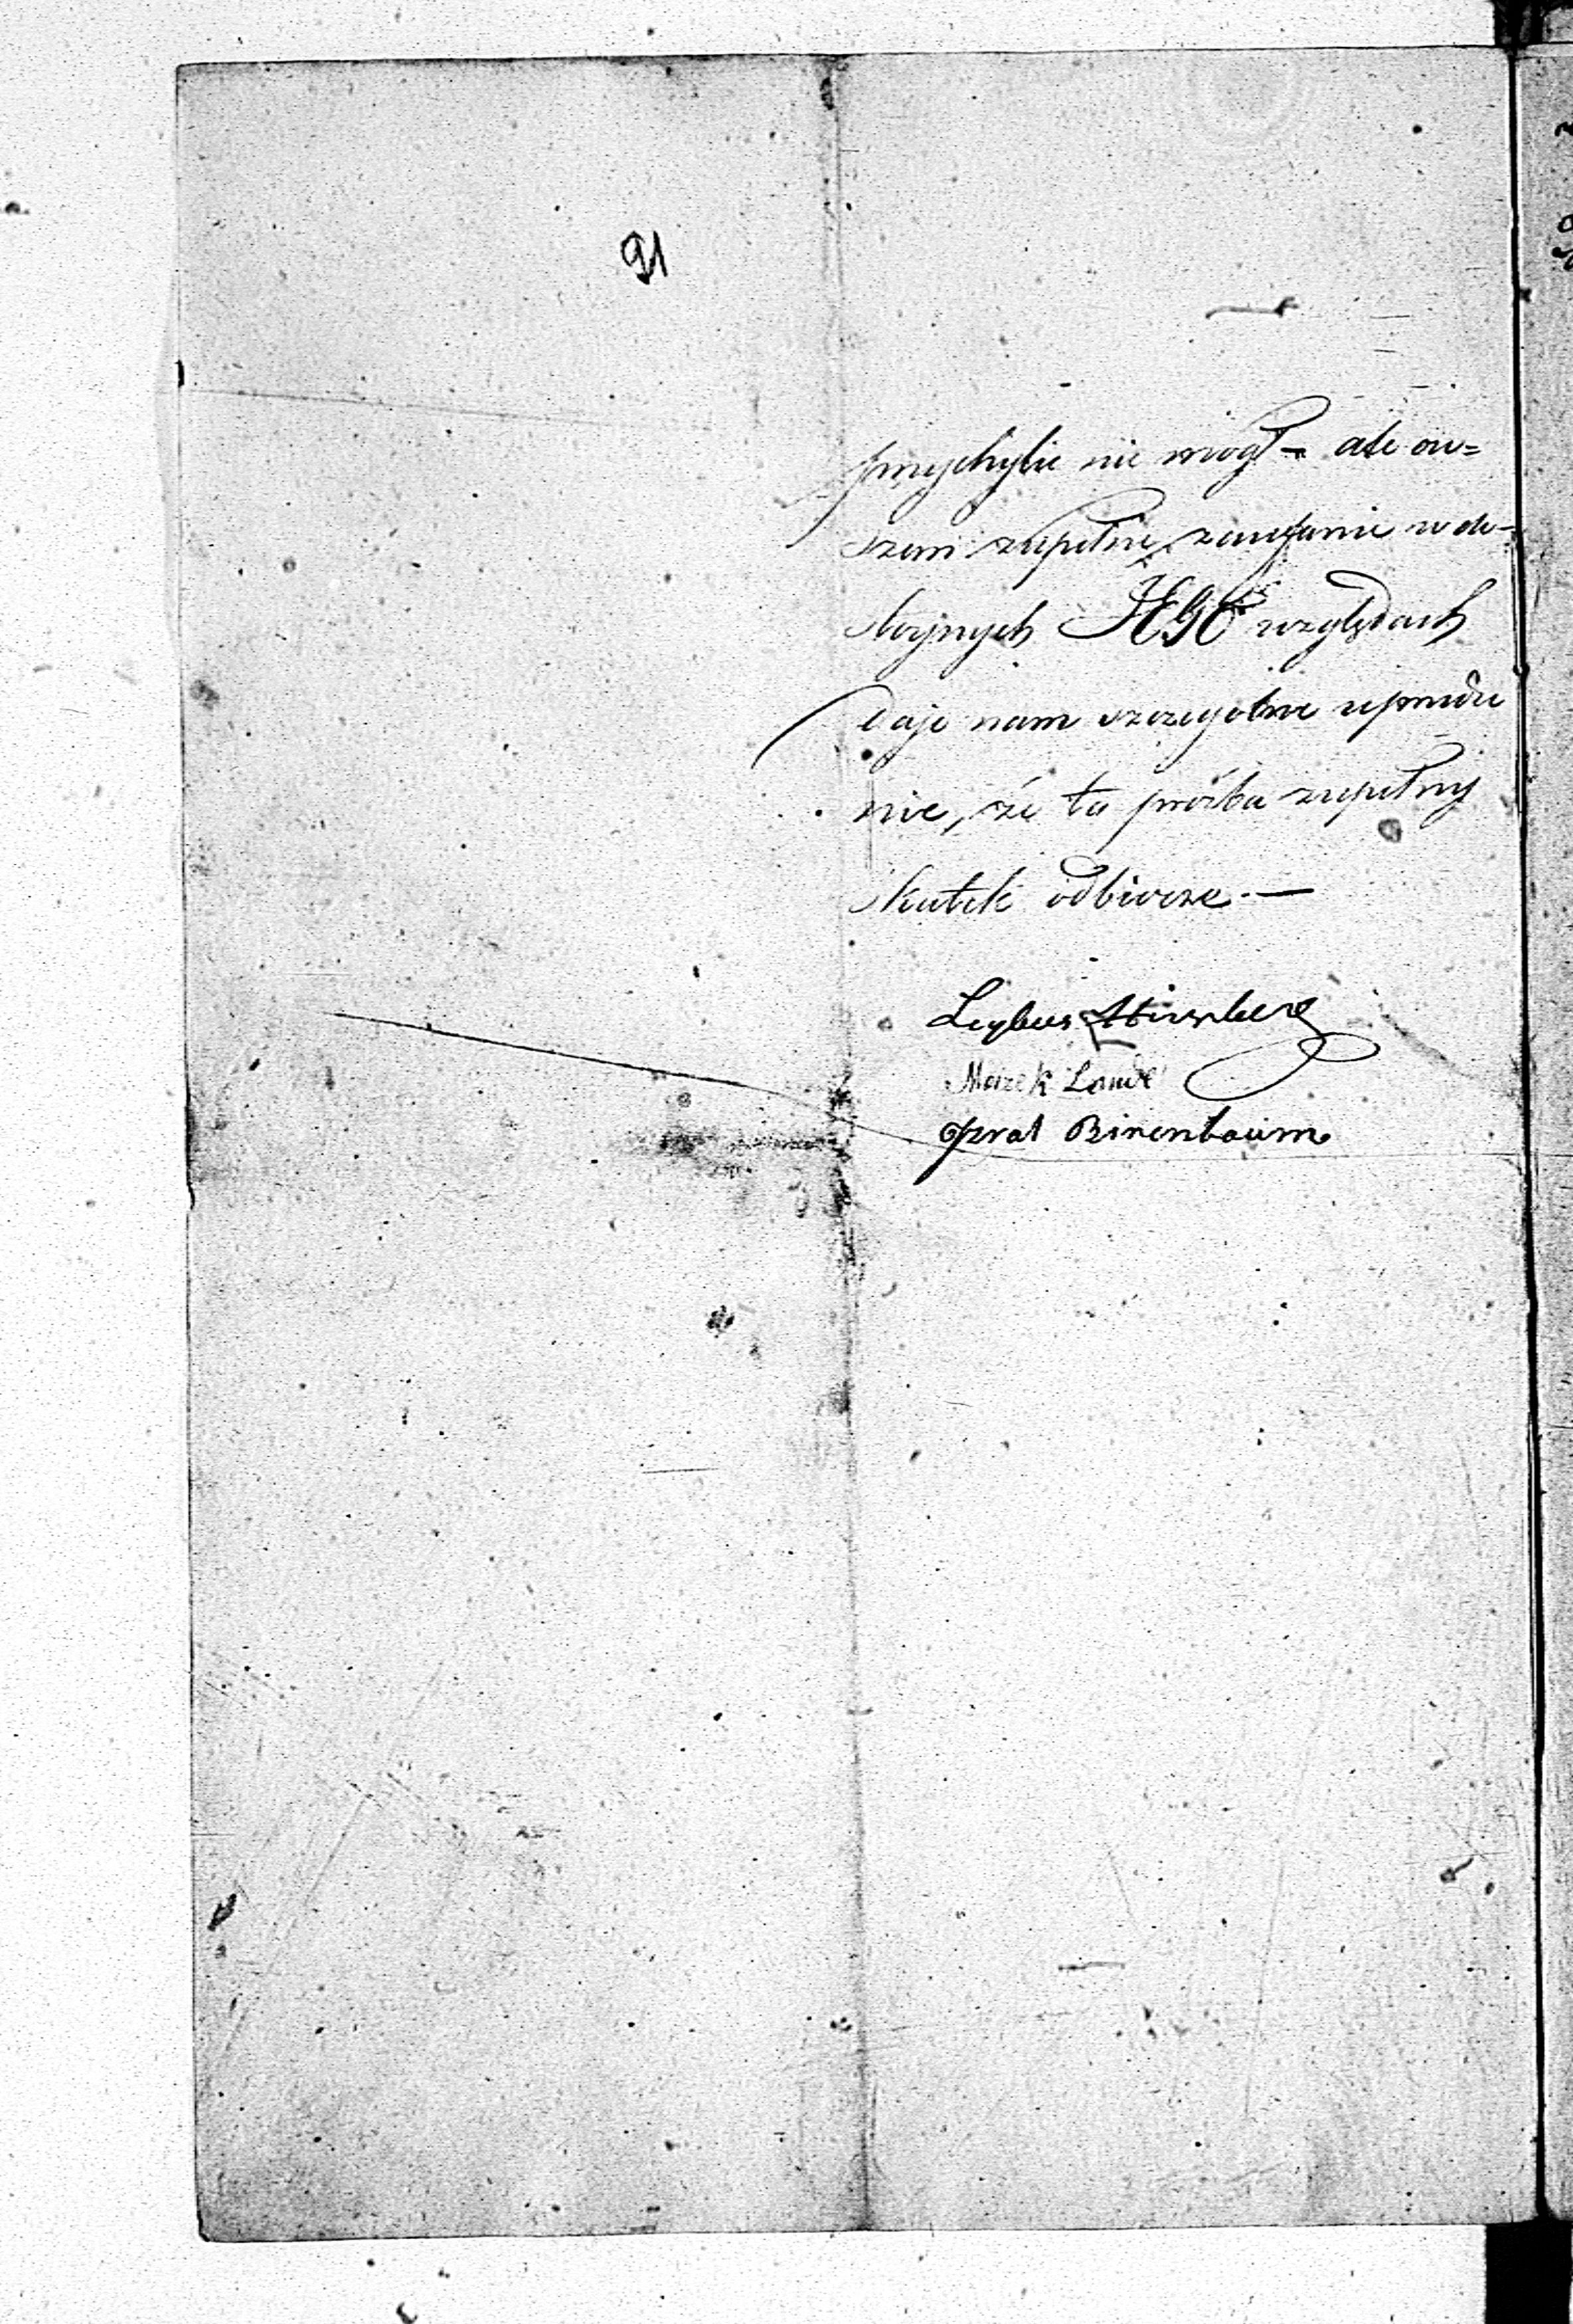 91
przychylić nie mógł – ale ow=
szem zupełne zaufanie w do-
stojnych JEGO względach
daje nam szczególne uprzedze
nie, że ta prośba zupełny
skutek odbierze. —
Leybus Hirszberg
Marek Lande
Izrael Birenbaum